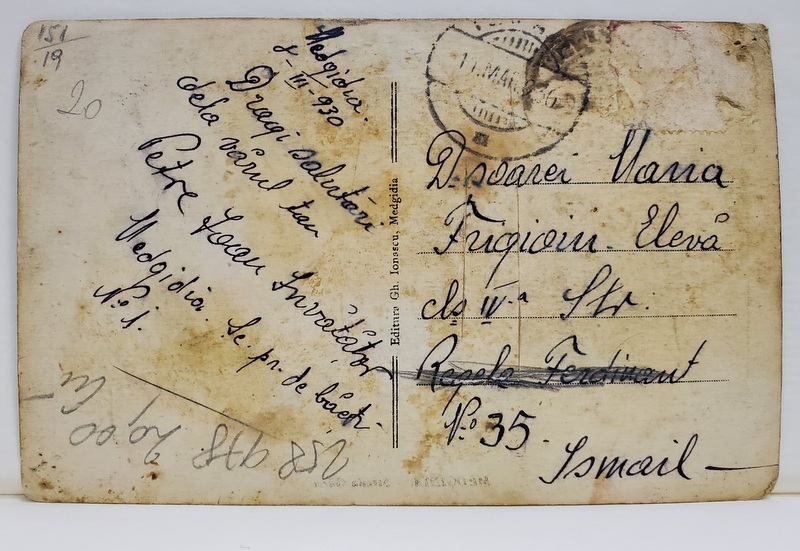 151
19
20
Medgidia.
8-III-930
Dragi salutări
dela vărul tau
Petre Ioan Învătător
Medgidia. Șc. pr. de băeți.
No. 1.
258 978
20,00
Editura Gh. Ionescu, Medgidia
11. MAR. 930
Dșoarei Maria
Frigioiu. Elevă
cls IV-a Str.
Regele Ferdinant
No. 35.
Ismail